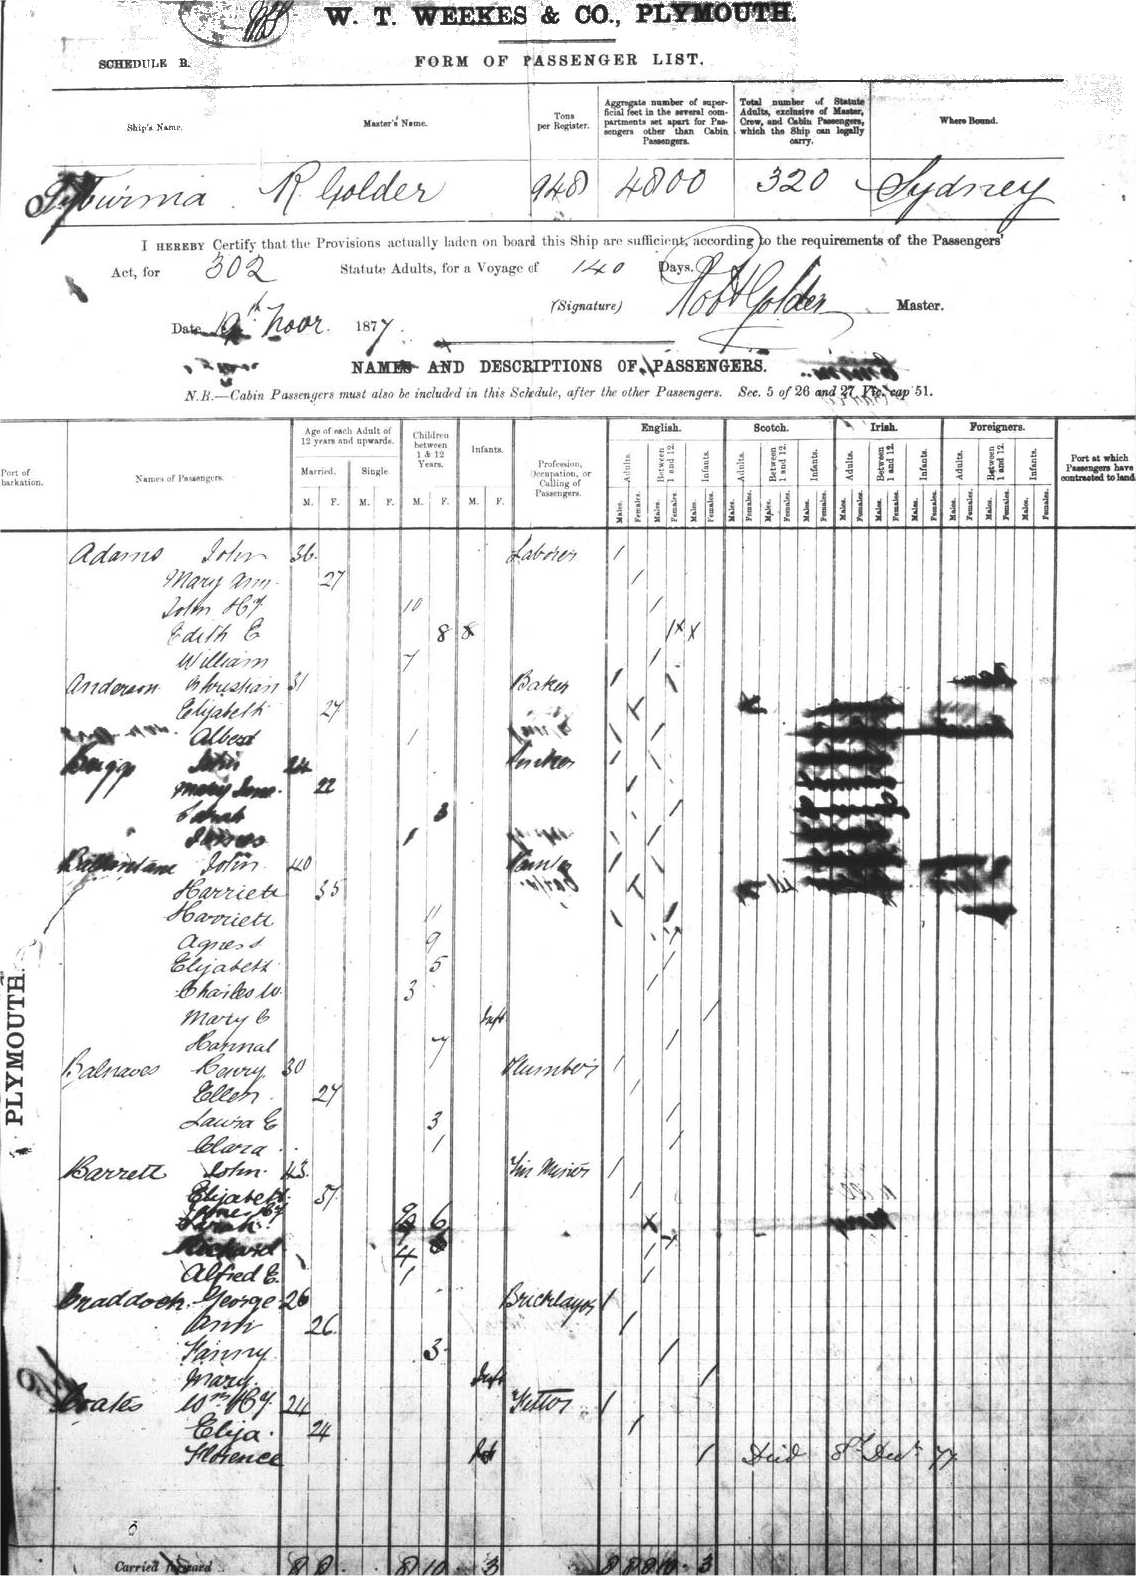 W. T. WEEKES & CO., PLYMOUTH.
SCHEDULE B.
FORM OF PASSENGER LIST.
Ship's Name. Master's Name. Tons per Register. Aggregate number of superficial feet in the several compartments set apart for Passengers other than Cabin Passengers. Total number of Statute Adults, exclusive of Master, Crew, and Cabin Passengers, which the Ship can legally carry. Where Bound.
R Golder 948 4800 320 Sydney
I HEREBY Certify that the Provisions actually laden on board this Ship are sufficient, according to the requirements of the Passengers'
Act, for 302 Statute Adults, for a Voyage of 140 Days.
(Signature) Robt Golder Master.
Date 1877.
NAMES AND DESCRIPTIONS OF PASSENGERS.
N.B.—Cabin Passengers must also be included in this Schedule, after the other Passengers. Sec. 5 of 26 and 27 Vic. cap 51.
Port of barkation. Names of Passengers. Age of each Adult of 12 years and upwards. Children between 1 & 12 Years. Infants. Profession, Occupation, or Calling of Passengers. English. Scotch. Irish. Foreigners. Port at which Passengers have contracted to land
Married. Single
Adults. Between 1 and 12. Infants. Adults. Between 1 and 12. Infants. Adults. Between 1 and 12. Infants. Adults. Between 1 and 12. Infants.
M. F. M. F. M. F. M. F. Males. Females. Males. Females. Males. Females. Males. Females. Males. Females. Males. Females. Males. Females. Males. Females. Males. Females. Males. Females. Males. Females. Males. Females.
Adams John 36 Laborer
Mary Ann 27
John Hy 10
Edith E 8
William 7
Anderson Christian 31 Baker
Elizabeth 27
Albert 1
John 24
Mary Jane 22
Sarah 3
James 1
Ballantane John 40
Harriett 35
Harriett 11
Agness 9
Elizabeth 5
Charles W. 3
Mary E Inft
Hannah 7
Balnaves Henry 30 Plumber
Ellen 27
Laura E 3
Clara 1
Barrett John 43 Tin Miner
Elizabeth 37
James Hy 9
Sarah 6
Richard 4
Alfred E. 1
Braddock George 26 Bricklayer
Ann 26
Fanny 3
Mary Inft
Coates Wm Hy 24 Fitter
Eliza 24
Florence Inft Died 8th Decr 77
PLYMOUTH.
Carried forward 8 8 8 10 3 8 8 8 10 3